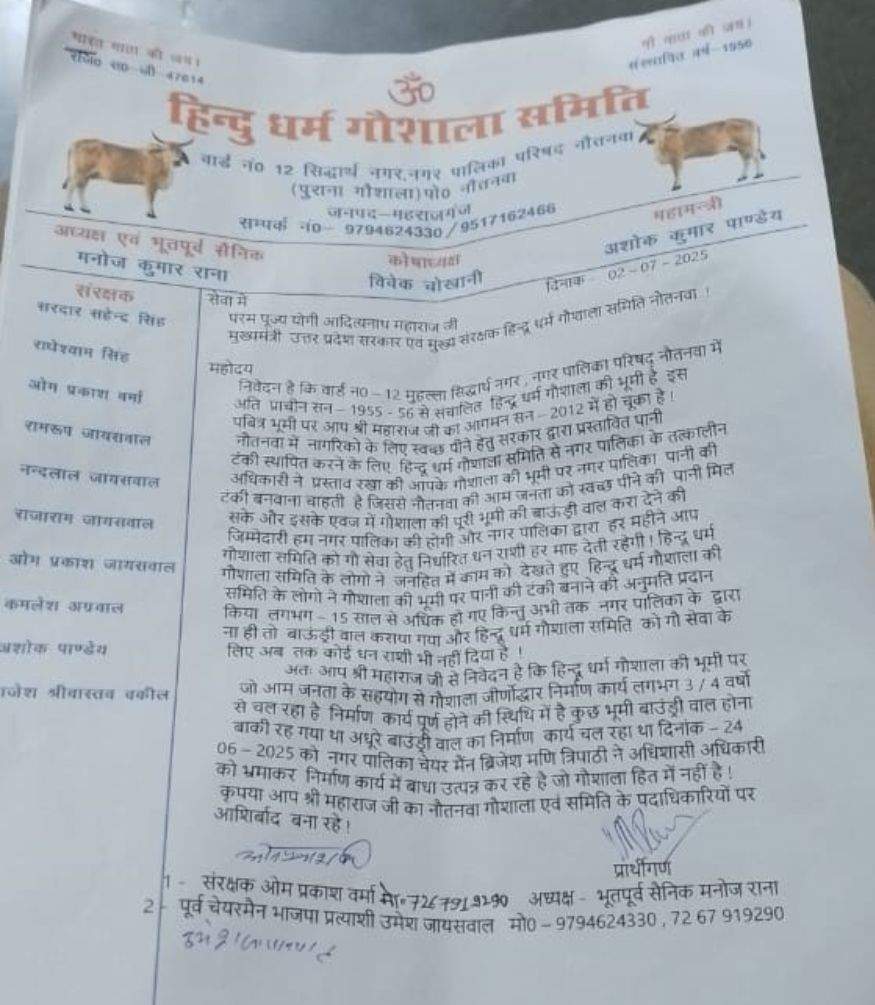 भारत माता की जय।
गौ माता की जय।
रजि० स०-जी-47614
संस्थापित वर्ष-1956
ॐ
हिन्दु धर्म गौशाला समिति
वार्ड नं0 12 सिद्धार्थ नगर,नगर पालिका परिषद नौतनवा
(पुराना गौशाला)पो0 नौतनवा
जनपद-महराजगंज
सम्पर्क नं0- 9794624330/9517162466
अध्यक्ष एवं भूतपूर्व सैनिक
मनोज कुमार राना
कोषाध्यक्ष
विवेक चोखानी
महामन्त्री
अशोक कुमार पाण्डेय
दिनांक - 02-07-2025
संरक्षक
सरदार सहेन्द सिंह
राधेश्याम सिंह
ओम प्रकाश वर्मा
रामरूप जायसवाल
नन्दलाल जायसवाल
राजाराम जायसवाल
ओम प्रकाश जायसवाल
कमलेश अग्रवाल
अशोक पाण्डेय
राजेश श्रीवास्तव वकील
सेवा में
परम पूज्य योगी आदित्यनाथ महाराज जी
मुख्यमंत्री उत्तर प्रदेश सरकार एवं मुख्य संरक्षक हिन्दू धर्म गौशाला समिति नौतनवा !
महोदय
निवेदन है कि वार्ड न0 - 12 मुहल्ला सिद्धार्थ नगर , नगर पालिका परिषद् नौतनवा में
अति प्राचीन सन - 1955 - 56 से संचालित हिन्दू धर्म गौशाला की भूमी है इस
पबित्र भूमी पर आप श्री महाराज जी का आगमन सन - 2012 में हो चूका है !
नौतनवा में नागरिको के लिए स्वच्छ पीने हेतु सरकार द्वारा प्रस्तावित पानी
टंकी स्थापित करने के लिए हिन्दू धर्म गौशाला समिति से नगर पालिका के तत्कालीन
अधिकारी ने प्रस्ताव रखा की आपके गौशाला की भूमी पर नगर पालिका पानी की
टंकी बनवाना चाहती है जिससे नौतनवा की आम जनता को स्वच्छ पीने की पानी मिल
सके और इसके एवज में गौशाला की पूरी भूमी की बाऊंड्री वाल करा देने की
जिम्मेदारी हम नगर पालिका की होगी और नगर पालिका द्वारा हर महीने आप
गौशाला समिति को गौ सेवा हेतु निर्धारित धन राशी हर माह देती रहेगी ! हिन्दू धर्म
गौशाला समिति के लोगो ने जनहित में काम को देखते हुए हिन्दू धर्म गौशाला की
समिति के लोगो ने गौशाला की भूमी पर पानी की टंकी बनाने की अनुमति प्रदान
किया लगभग - 15 साल से अधिक हो गए किन्तु अभी तक नगर पालिका के द्वारा
ना ही तो बाऊंड्री वाल कराया गया और हिन्दू धर्म गौशाला समिति को गौ सेवा के
लिए अब तक कोई धन राशी भी नहीं दिया है !
अतः आप श्री महाराज जी से निवेदन है कि हिन्दू धर्म गौशाला की भूमी पर
जो आम जनता के सहयोग से गौशाला जीर्णोद्धार निर्माण कार्य लगभग 3 / 4 वर्षो
से चल रहा है निर्माण कार्य पूर्ण होने की स्थिति में है कुछ भूमी बाउंड्री वाल होना
बाकी रह गया था अधूरे बाउंड्री वाल का निर्माण कार्य चल रहा था दिनांक - 24
06 - 2025 को नगर पालिका चेयर मैन ब्रिजेश मणि त्रिपाठी ने अधिशासी अधिकारी
को भ्रमाकर निर्माण कार्य में बाधा उत्पन्न कर रहे है जो गौशाला हित में नहीं है !
कृपया आप श्री महाराज जी का नौतनवा गौशाला एवं समिति के पदाधिकारियों पर
आशिर्बाद बना रहे !
प्रार्थीगण
1 - संरक्षक ओम प्रकाश वर्मा मो०-7267919290 अध्यक्ष - भूतपूर्व सैनिक मनोज राना
2 - पूर्व चेयरमैन भाजपा प्रत्याशी उमेश जायसवाल मो0 - 9794624330 , 72 67 919290